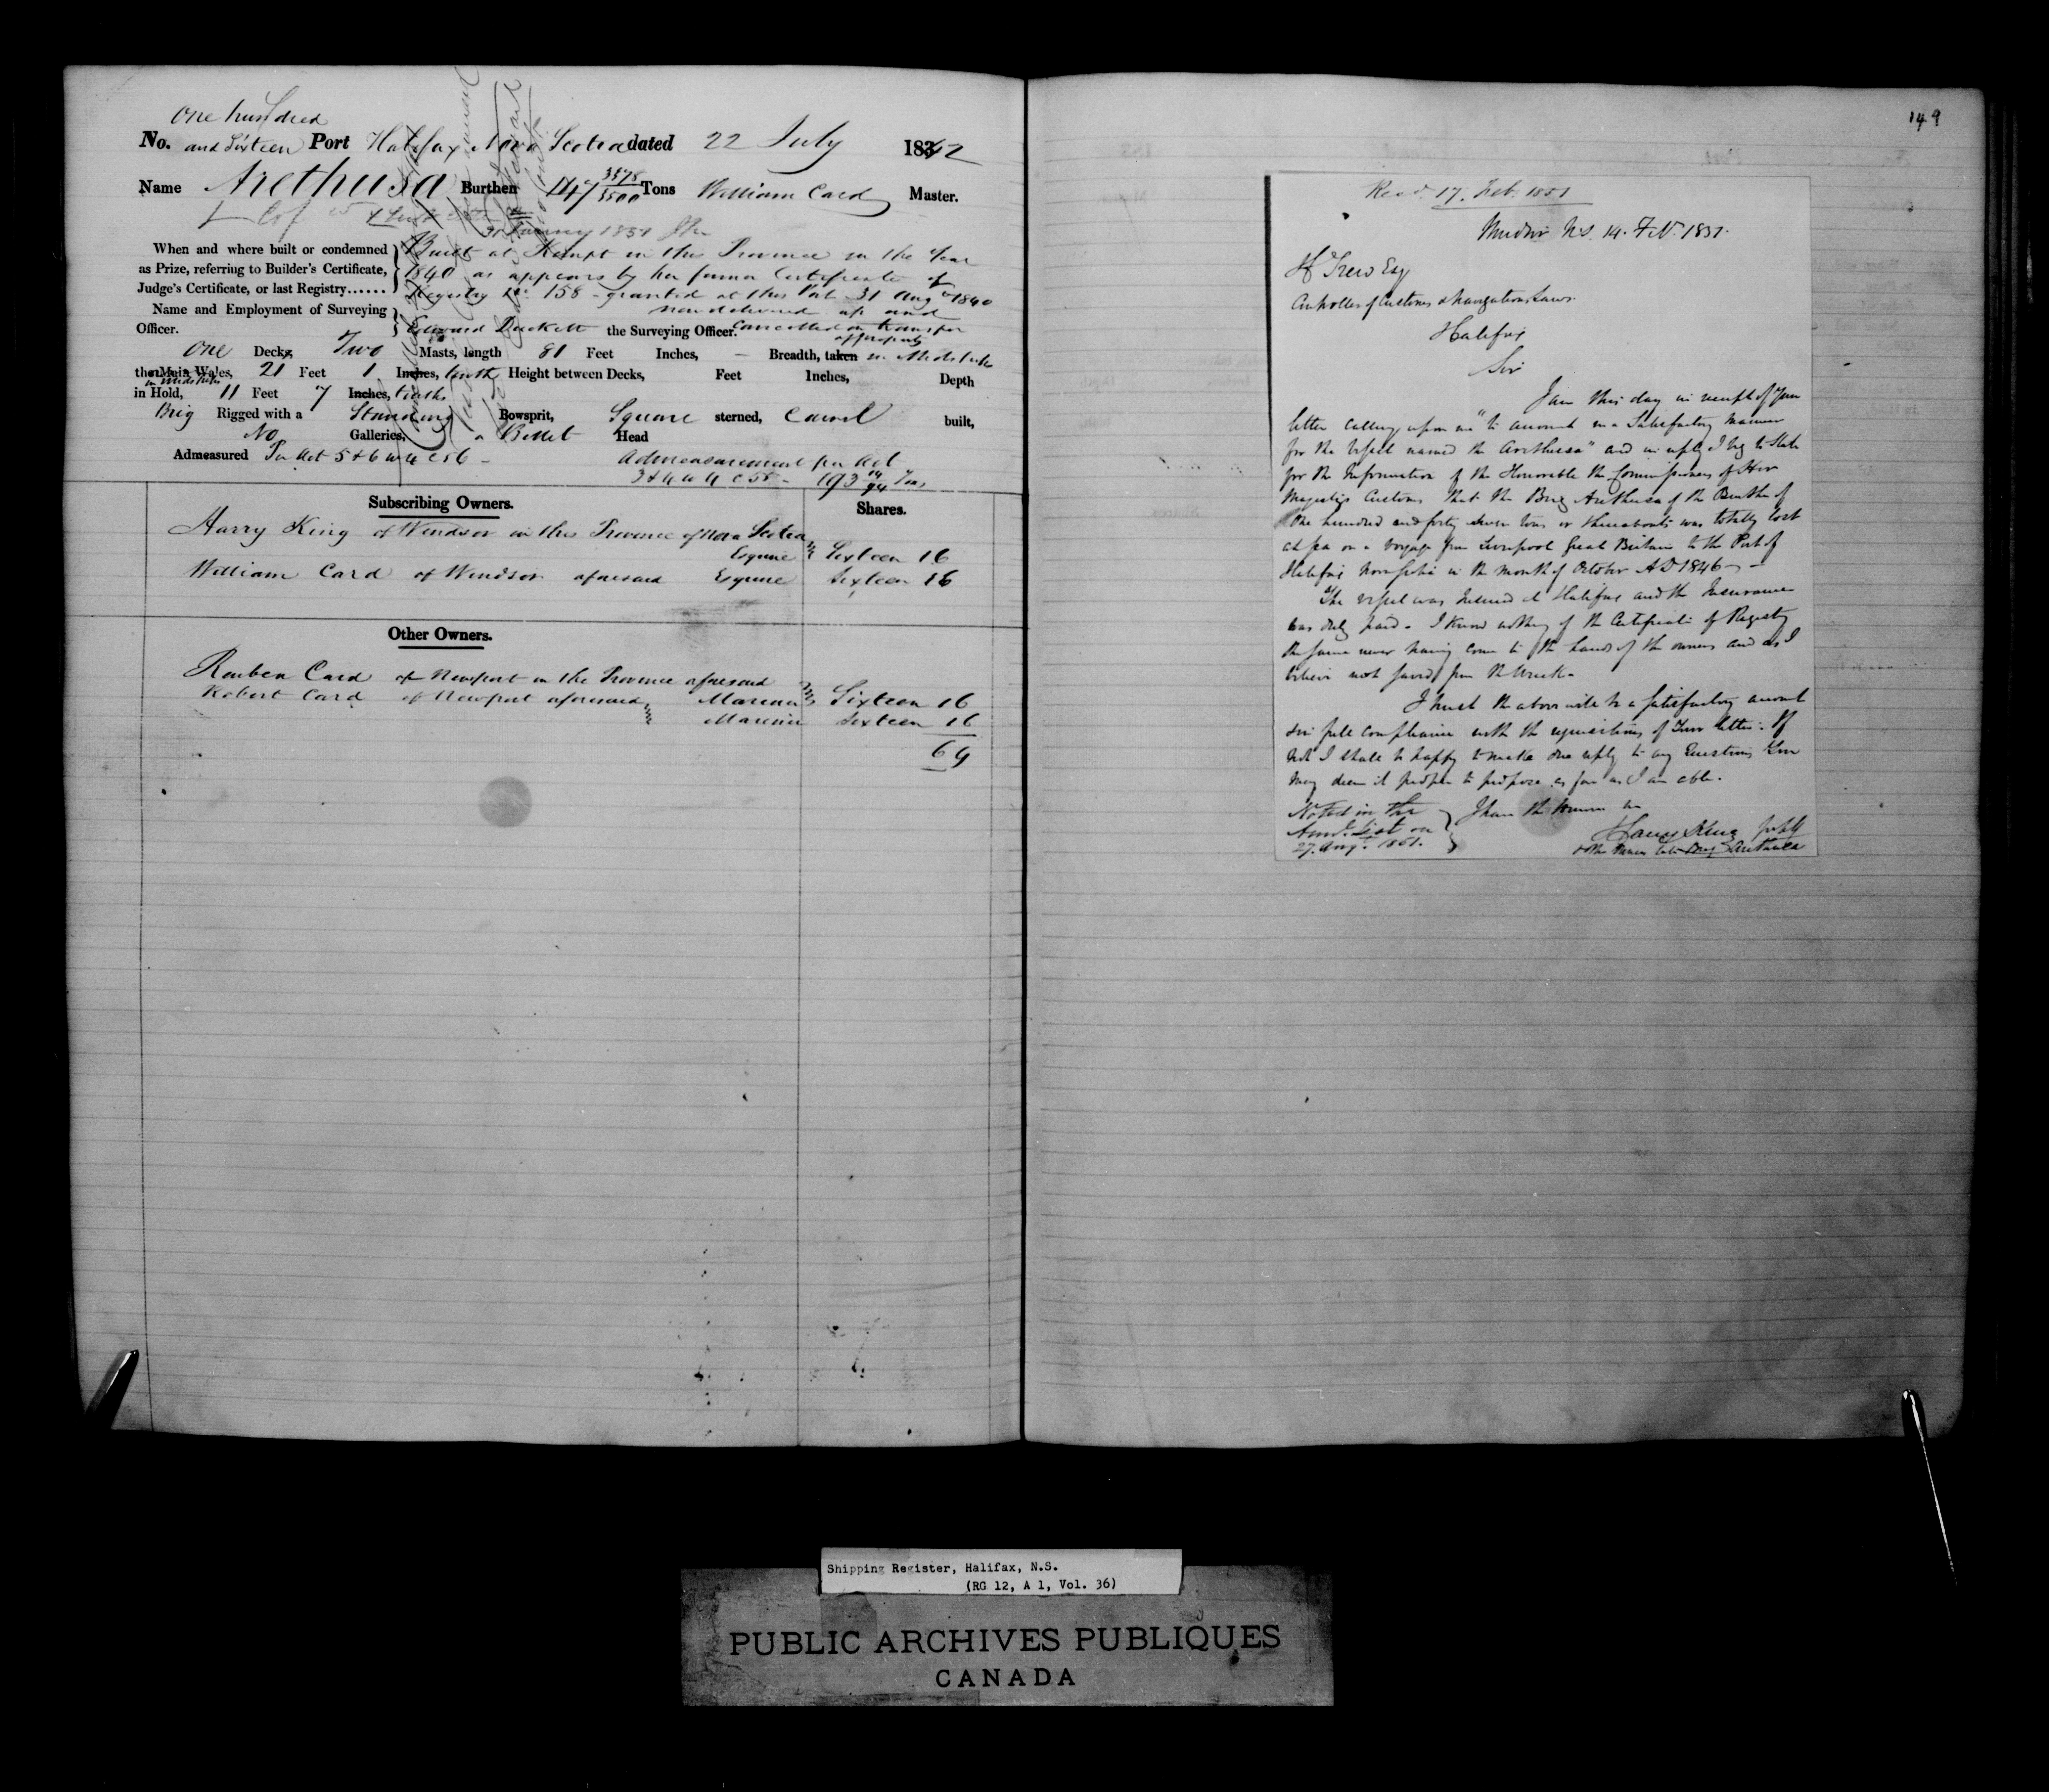 One hundred
No. and Sixteen Port Halifax Nova Scotia dated 22 July 1842
Name Arethusa Burthen 147 3378/3500 Tons William Card Master.
31 January 1851
When and where built or condemned
as Prize, referring to Builder's Certificate,
Judge's Certificate, or last Registry......
Built at Kempt in this Province in the Year
1840 as appears by her former Certificate of
Registry No. 158 - granted at this Port 31 Augt 1840
now delivered up and
Name and Employment of Surveying
Officer.
Edward Duckett the Surveying Officer. Cancelled on transfer
of property
One Decks, Two Masts, length 81 Feet Inches, - Breadth, taken in Midships
the Main Wales, 21 Feet 1 Inches, tenth Height between Decks, Feet Inches, Depth
in Midships
in Hold, 11 Feet 7 Inches, tenths
Brig Rigged with a Standing Bowsprit, Square sterned, Carvel built,
No Galleries, a Billet Head
Admeasured Per Act 5 & 6 W 4 C 56 - Admeasurement per Act
3 & 4 W 4 C 55 - 193 14/94 Tons
Subscribing Owners. Shares.
Harry King of Windsor in this Province of Nova Scotia
Esquire Sixteen 16
William Card of Windsor aforesaid Esquire Sixteen 16
Other Owners.
Reuben Card of Newport in the Province aforesaid
Mariner Sixteen 16
Robert Card of Newport aforesaid
Mariner Sixteen 16
64
149
Recd. 17. Feb. 1851
Windsor N.S. 14. Feb. 1851.
H Trew Esq
Controller of Customs & Navigation Laws.
Halifax
Sir
I am this day in receipt of Your
letter calling upon me "to account in a Satisfactory manner
for the Vessel named the Arethusa" and in reply I beg to State
for the Information of the Honorable the Commissioners of Her
Majestys Customs that the Brig Arethusa of the Burthen of
One hundred and forty seven tons or thereabouts was totally lost
at sea on a voyage from Liverpool Great Britain to the Port of
Halifax Nova Scotia in the month of October AD 1846 -
The vessel was Insured at Halifax and the Insurance
was duly paid - I know nothing of the Certificate of Registry
the same never having come to the hands of the owners and as I
believe not saved from the Wreck -
I trust the above will be a satisfactory account
& in full compliance with the requisitions of Your letter: If
not I shall be happy to make due reply to any Questions You
may deem it proper to propose as far as I am able.
I have the honour
Noted in the
Annl. List on
27. Augt. 1851.
Harry King for self
& other Owners late Brig Arethusa
Shipping Register, Halifax, N.S.
(RG 12, A 1, Vol. 36)
PUBLIC ARCHIVES PUBLIQUES
CANADA